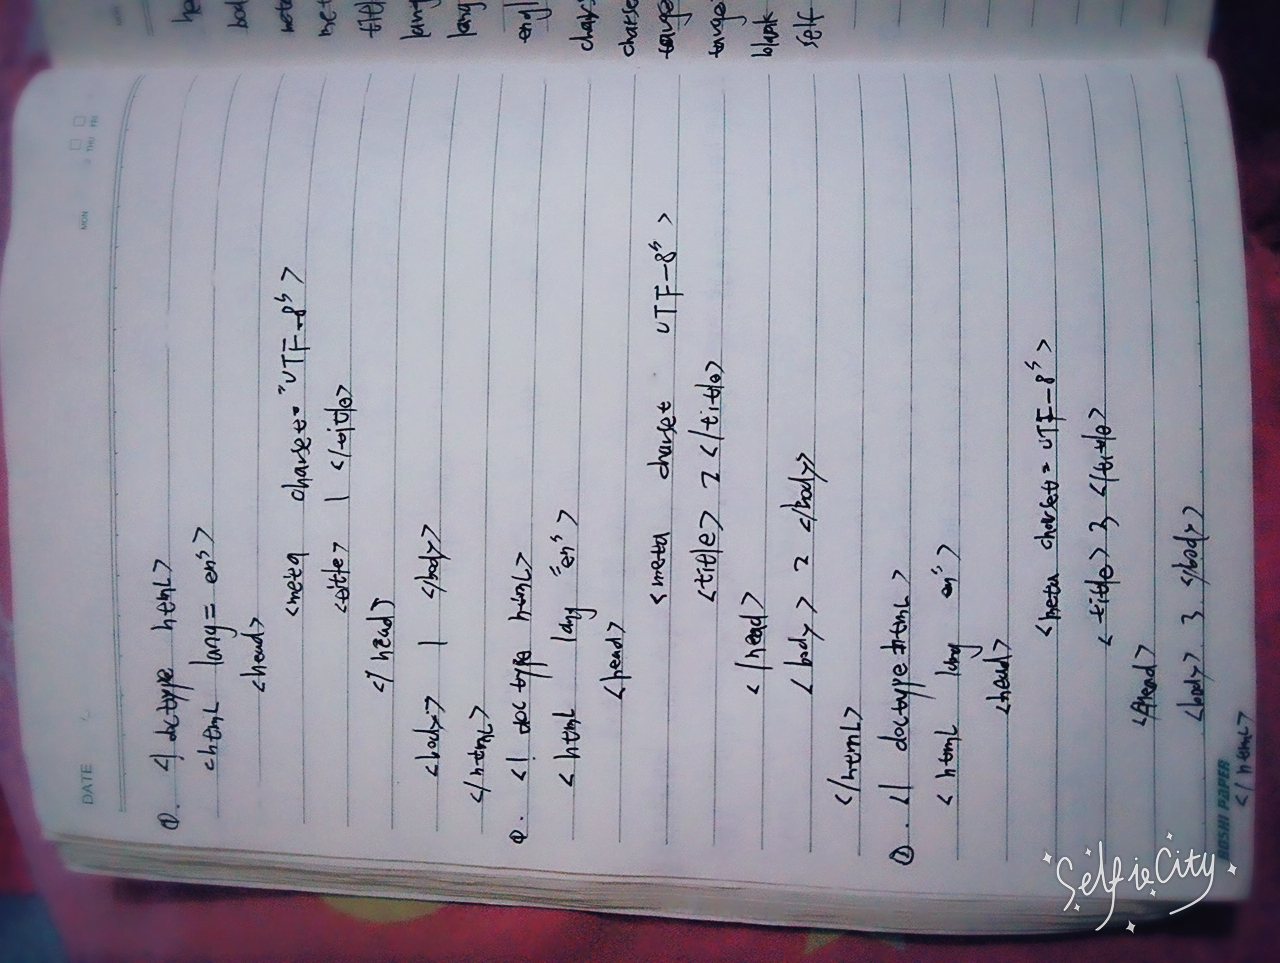 DATE
MON THU FRI
①. <! doctype html>
<html lang= en">
<head>
<meta charset= "UTF-8">
<title> 1 </title>
</head>
<body> 1 </body>
</html>
①. <! doctype html>
<html lang "en">
<head>
<meta charset UTF-8">
<title> 2 </title>
</head>
<body> 2 </body>
</html>
②. <! doctype html>
<html lang en">
<head>
<meta charset= UTF-8">
<title> 3 </title>
</head>
<body> 3 </body>
</html>
BOSHI PAPER
title
lang
lang
blank
self
SelfieCity